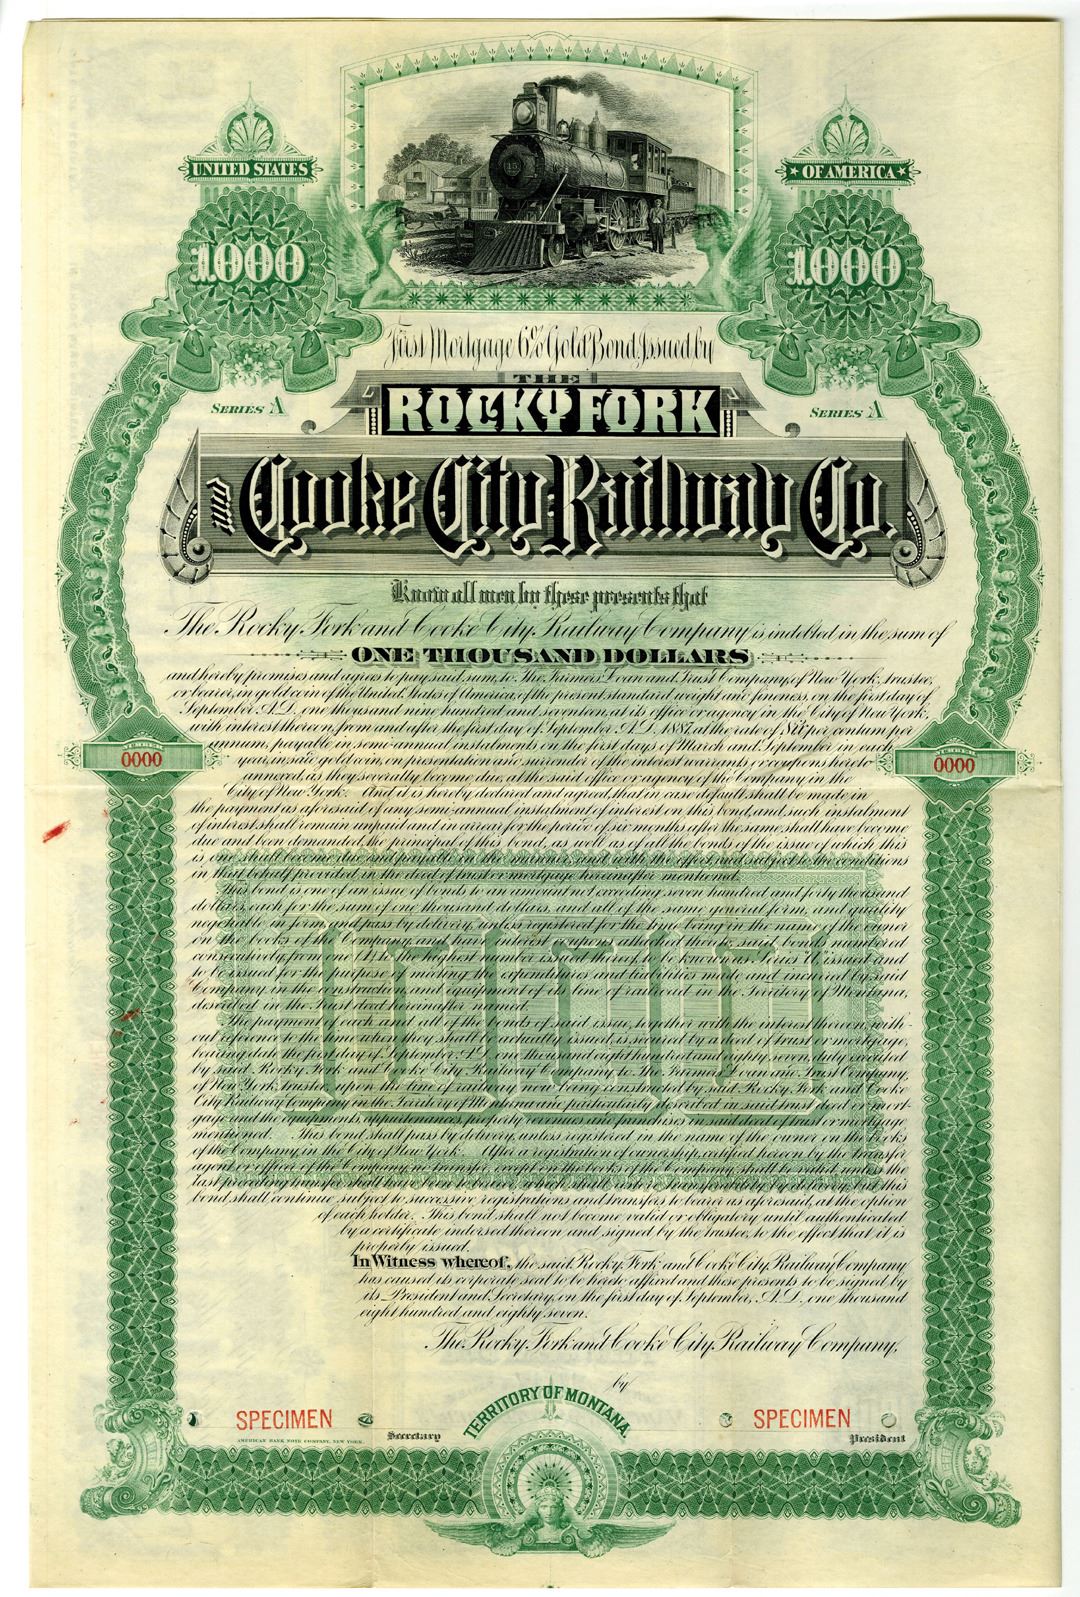 UNITED STATES
OF AMERICA
1000
1000
15
First Mortgage 6% Gold Bond Issued by
SERIES A
THE
SERIES A
ROCKY FORK
and Cooke City Railway Co.
Know all men by these presents that
The Rocky Fork and Cooke City Railway Company is indebted in the sum of
ONE THOUSAND DOLLARS
and hereby promises and agrees to pay said sum, to The Farmers Loan and Trust Company, of New York, trustee,
or bearer, in gold coin of the United States of America, of the present standard weight and fineness, on the first day of
September A.D. one thousand nine hundred and seventeen, at its office or agency in the City of New York,
with interest thereon from and after the first day of September A.D. 1887, at the rate of Six per centum per
annum, payable in semi-annual instalments on the first days of March and September in each
year, in said gold coin, on presentation and surrender of the interest warrants or coupons hereto
0000
0000
annexed, as they severally become due, at the said office or agency of the Company in the
City of New York. And it is hereby declared and agreed, that in case default shall be made in
the payment as aforesaid of any semi-annual instalment of interest on this bond, and such instalment
of interest shall remain unpaid and in arrear for the period of six months after the same shall have become
due and been demanded, the principal of this Bond, as well as of all the bonds of the issue of which this
is one shall become due and payable in the manner and with the effect and subject to the conditions
in that behalf provided in the deed of trust or mortgage hereinafter mentioned.
This bond is one of an issue of bonds to an amount not exceeding seven hundred and forty thousand
dollars, each for the sum of one thousand dollars, and all of the same general form, and quality
negotiable in form, and pass by delivery, unless registered for the time being in the name of the owner
on the books of the Company, and have interest coupons attached thereto, said bonds numbered
consecutively, from one (1) to the highest number issued thereof, to be known as Series A, issued and
to be issued for the purpose of meeting the expenditures and liabilities made and incurred by said
Company in the construction and equipment of its line of railroad in the Territory of Montana,
described in the trust deed hereinafter named.
The payment of each and all of the bonds of said issue, together with the interest thereon, with-
out reference to the time when they shall be actually issued, is secured by a deed of trust or mortgage,
bearing date the first day of September, A.D. one thousand eight hundred and eighty seven, duly executed
by said Rocky Fork and Cooke City Railway Company, to The Farmers Loan and Trust Company,
of New York, trustee, upon the line of railway now being constructed by said Rocky Fork and Cooke
City Railway Company in the Territory of Montana and particularly described in said trust deed or mort-
gage and the equipments, appurtenances, property, revenues and franchises in said deed of trust or mortgage
mentioned. This bond shall pass by delivery, unless registered in the name of the owner on the books
of the Company, in the City of New York. After a registration of ownership, certified hereon by the transfer
agent or officer of the Company, no transfer except on the books of the Company shall be valid, unless the
last preceding transfer shall have been to bearer, which shall restore transferability by delivery, but this
bond shall continue subject to successive registrations and transfers to bearer as aforesaid, at the option
of each holder. This bond shall not become valid or obligatory until authenticated
by a certificate indorsed thereon and signed by the trustee, to the effect that it is
properly issued.
In Witness whereof, the said Rocky Fork and Cooke City Railway Company
has caused its corporate seal to be hereto affixed and these presents to be signed by
its President and Secretary, on the first day of September, A.D. one thousand
eight hundred and eighty seven.
The Rocky Fork and Cooke City Railway Company,
by
TERRITORY OF MONTANA.
SPECIMEN
SPECIMEN
AMERICAN BANK NOTE COMPANY, NEW YORK.
Secretary
President